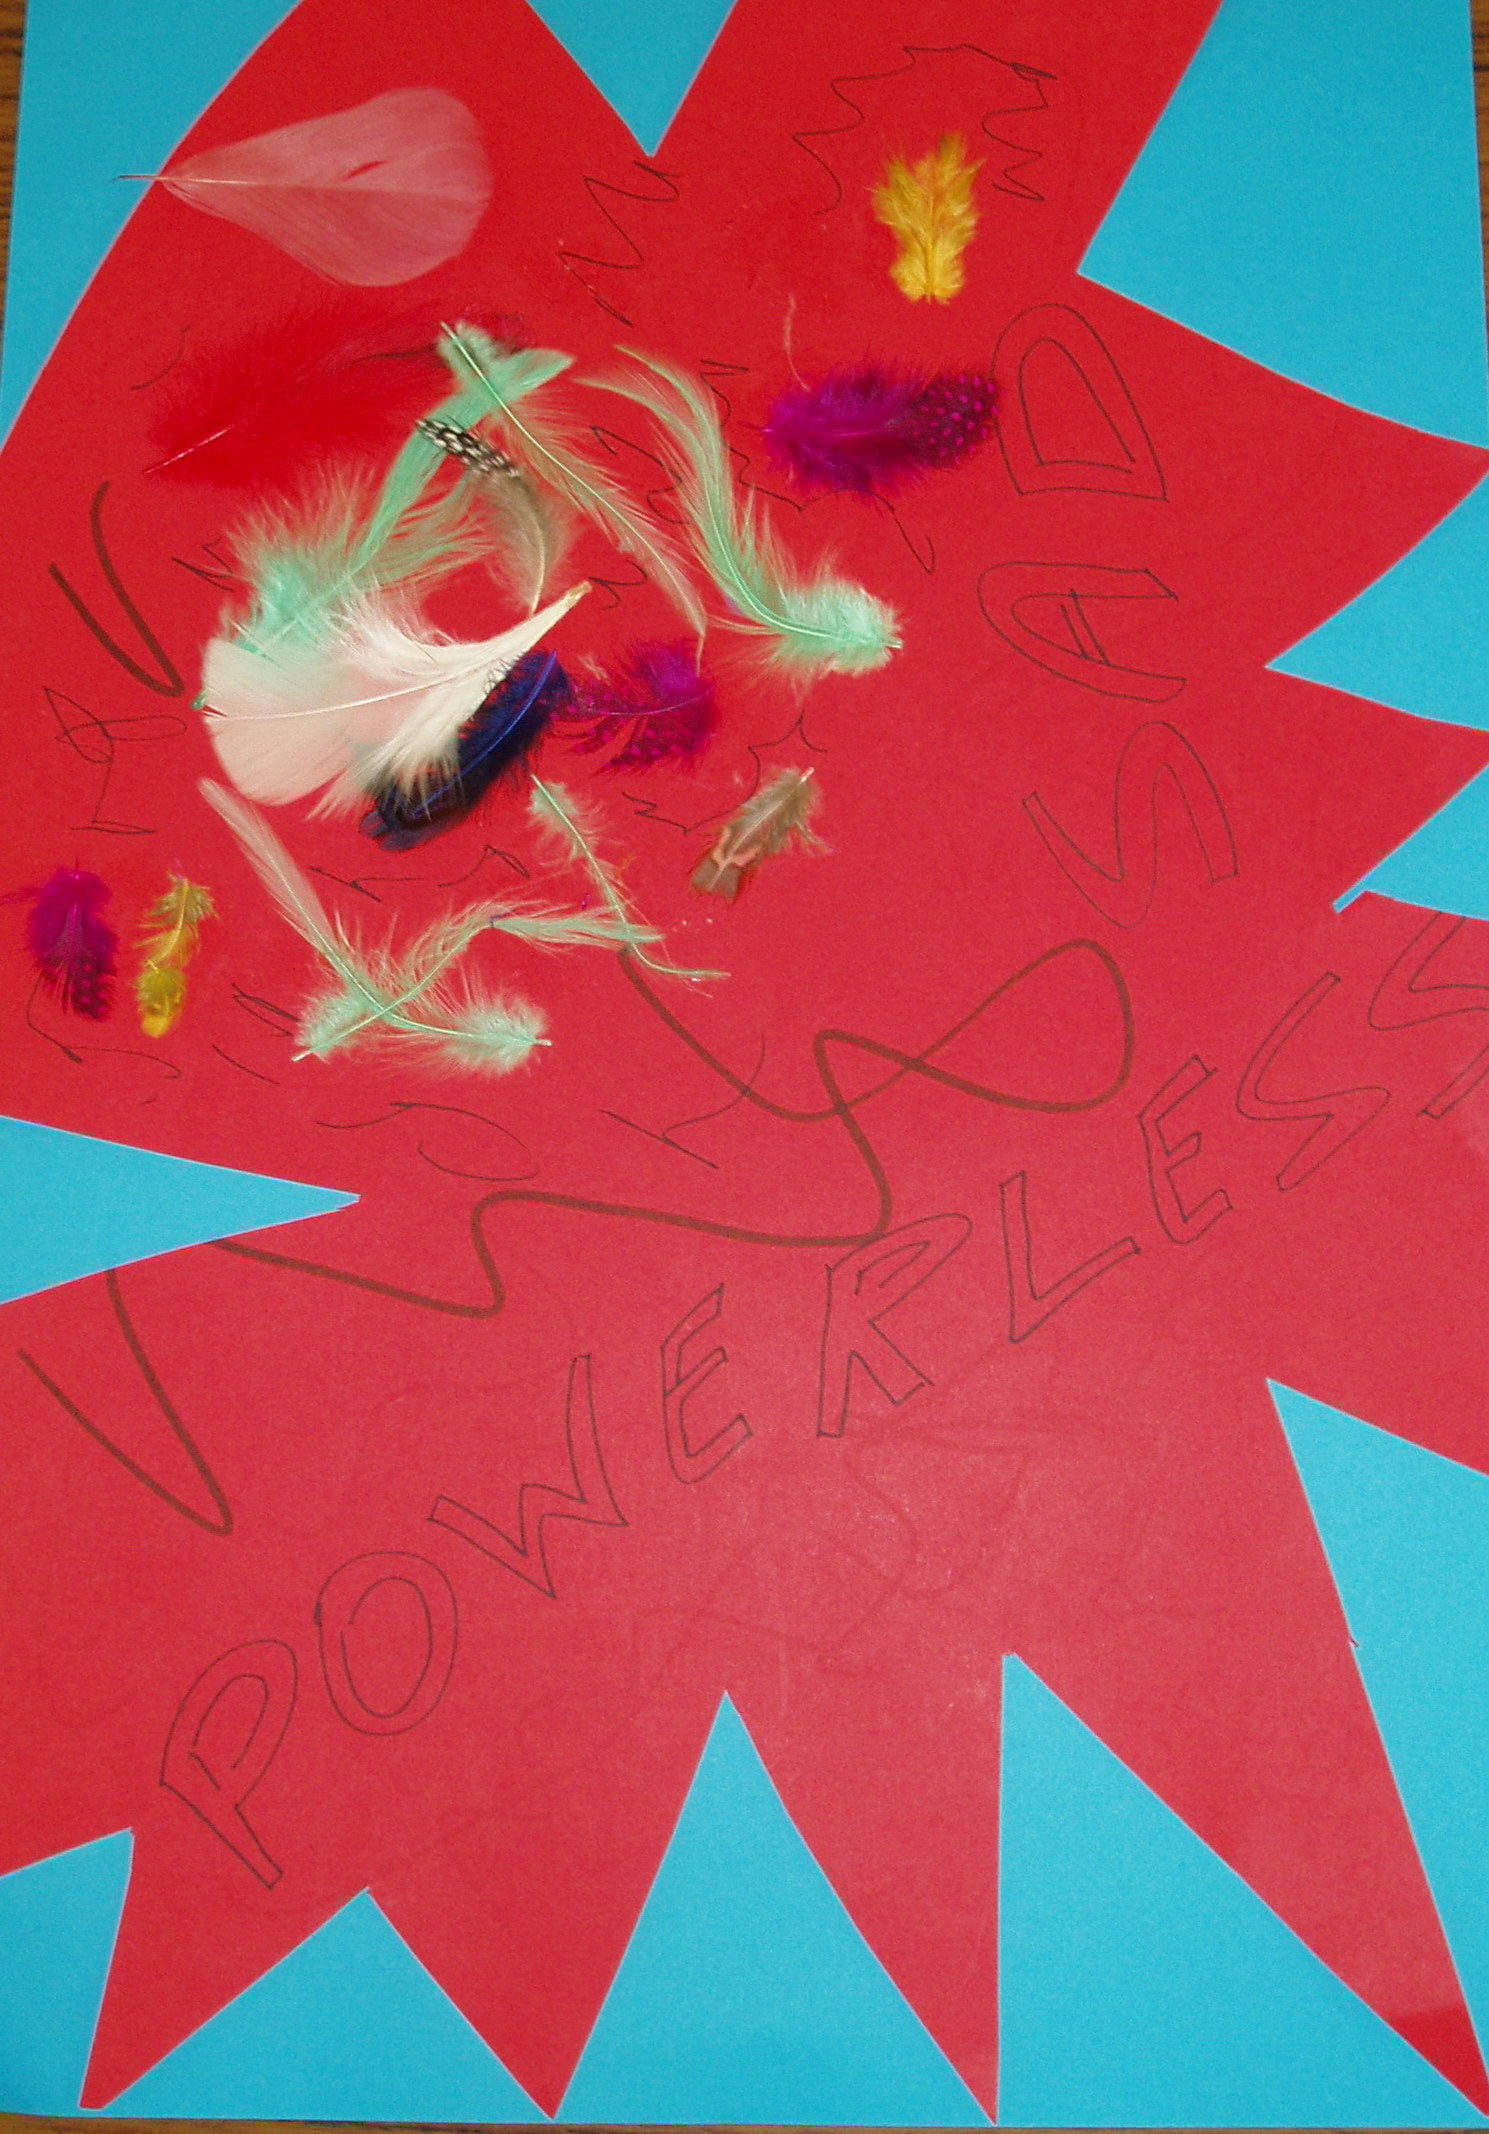 SAD
POWERLESS